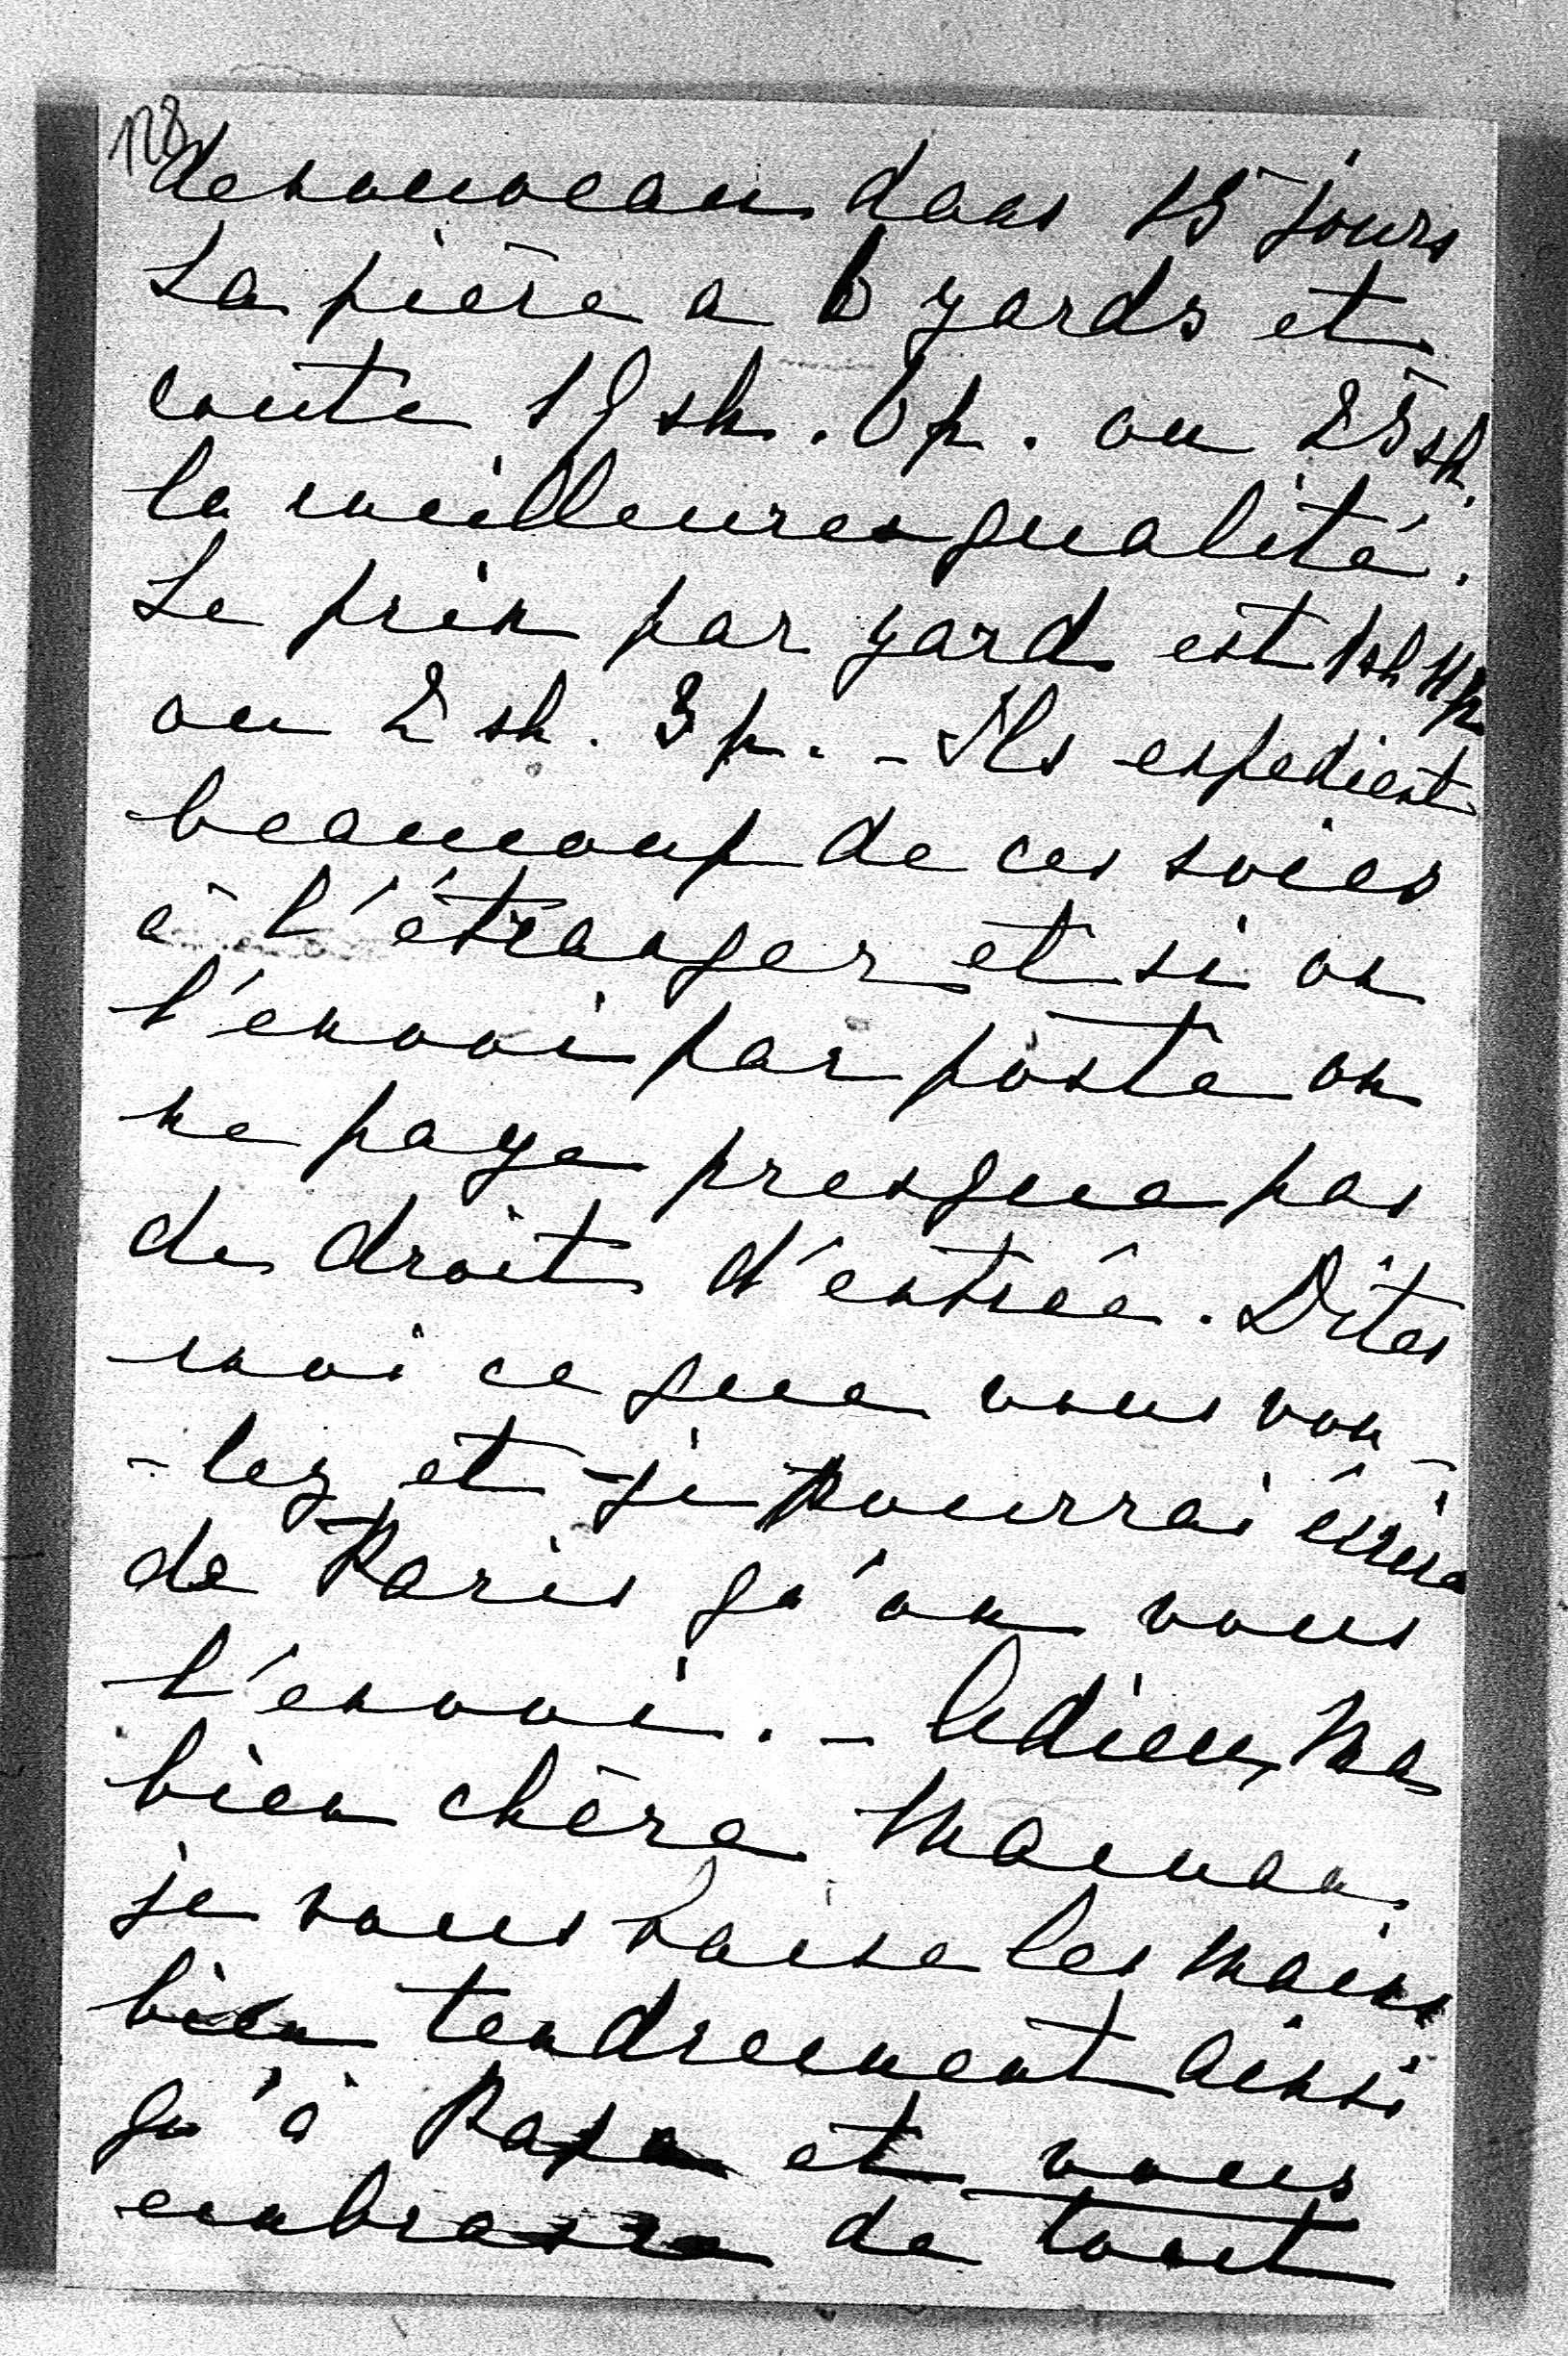 128
de nouveau dans 15 jours
La pièce a 6 yards et
coute 19 sh. 6 p. ou 25 sh.
la meilleures qualité.
Le prix par yard est 1 sh 11 p
ou 2 sh. 3 p. - Ils expedient
beaucoup de ces soies
à l'étranger et si on
l'envoi par poste on
ne paye presque pas
de droit d'entrée. Dites
moi ce que vous vou-
-lez et je pourrai écrire
de Paris qu'on vous
l'envoi. - Adieu, ma
bien chère Maman,
je vous baise les mains
bien tendrement ainsi
qu'à Papa et vous
embrasse de tout